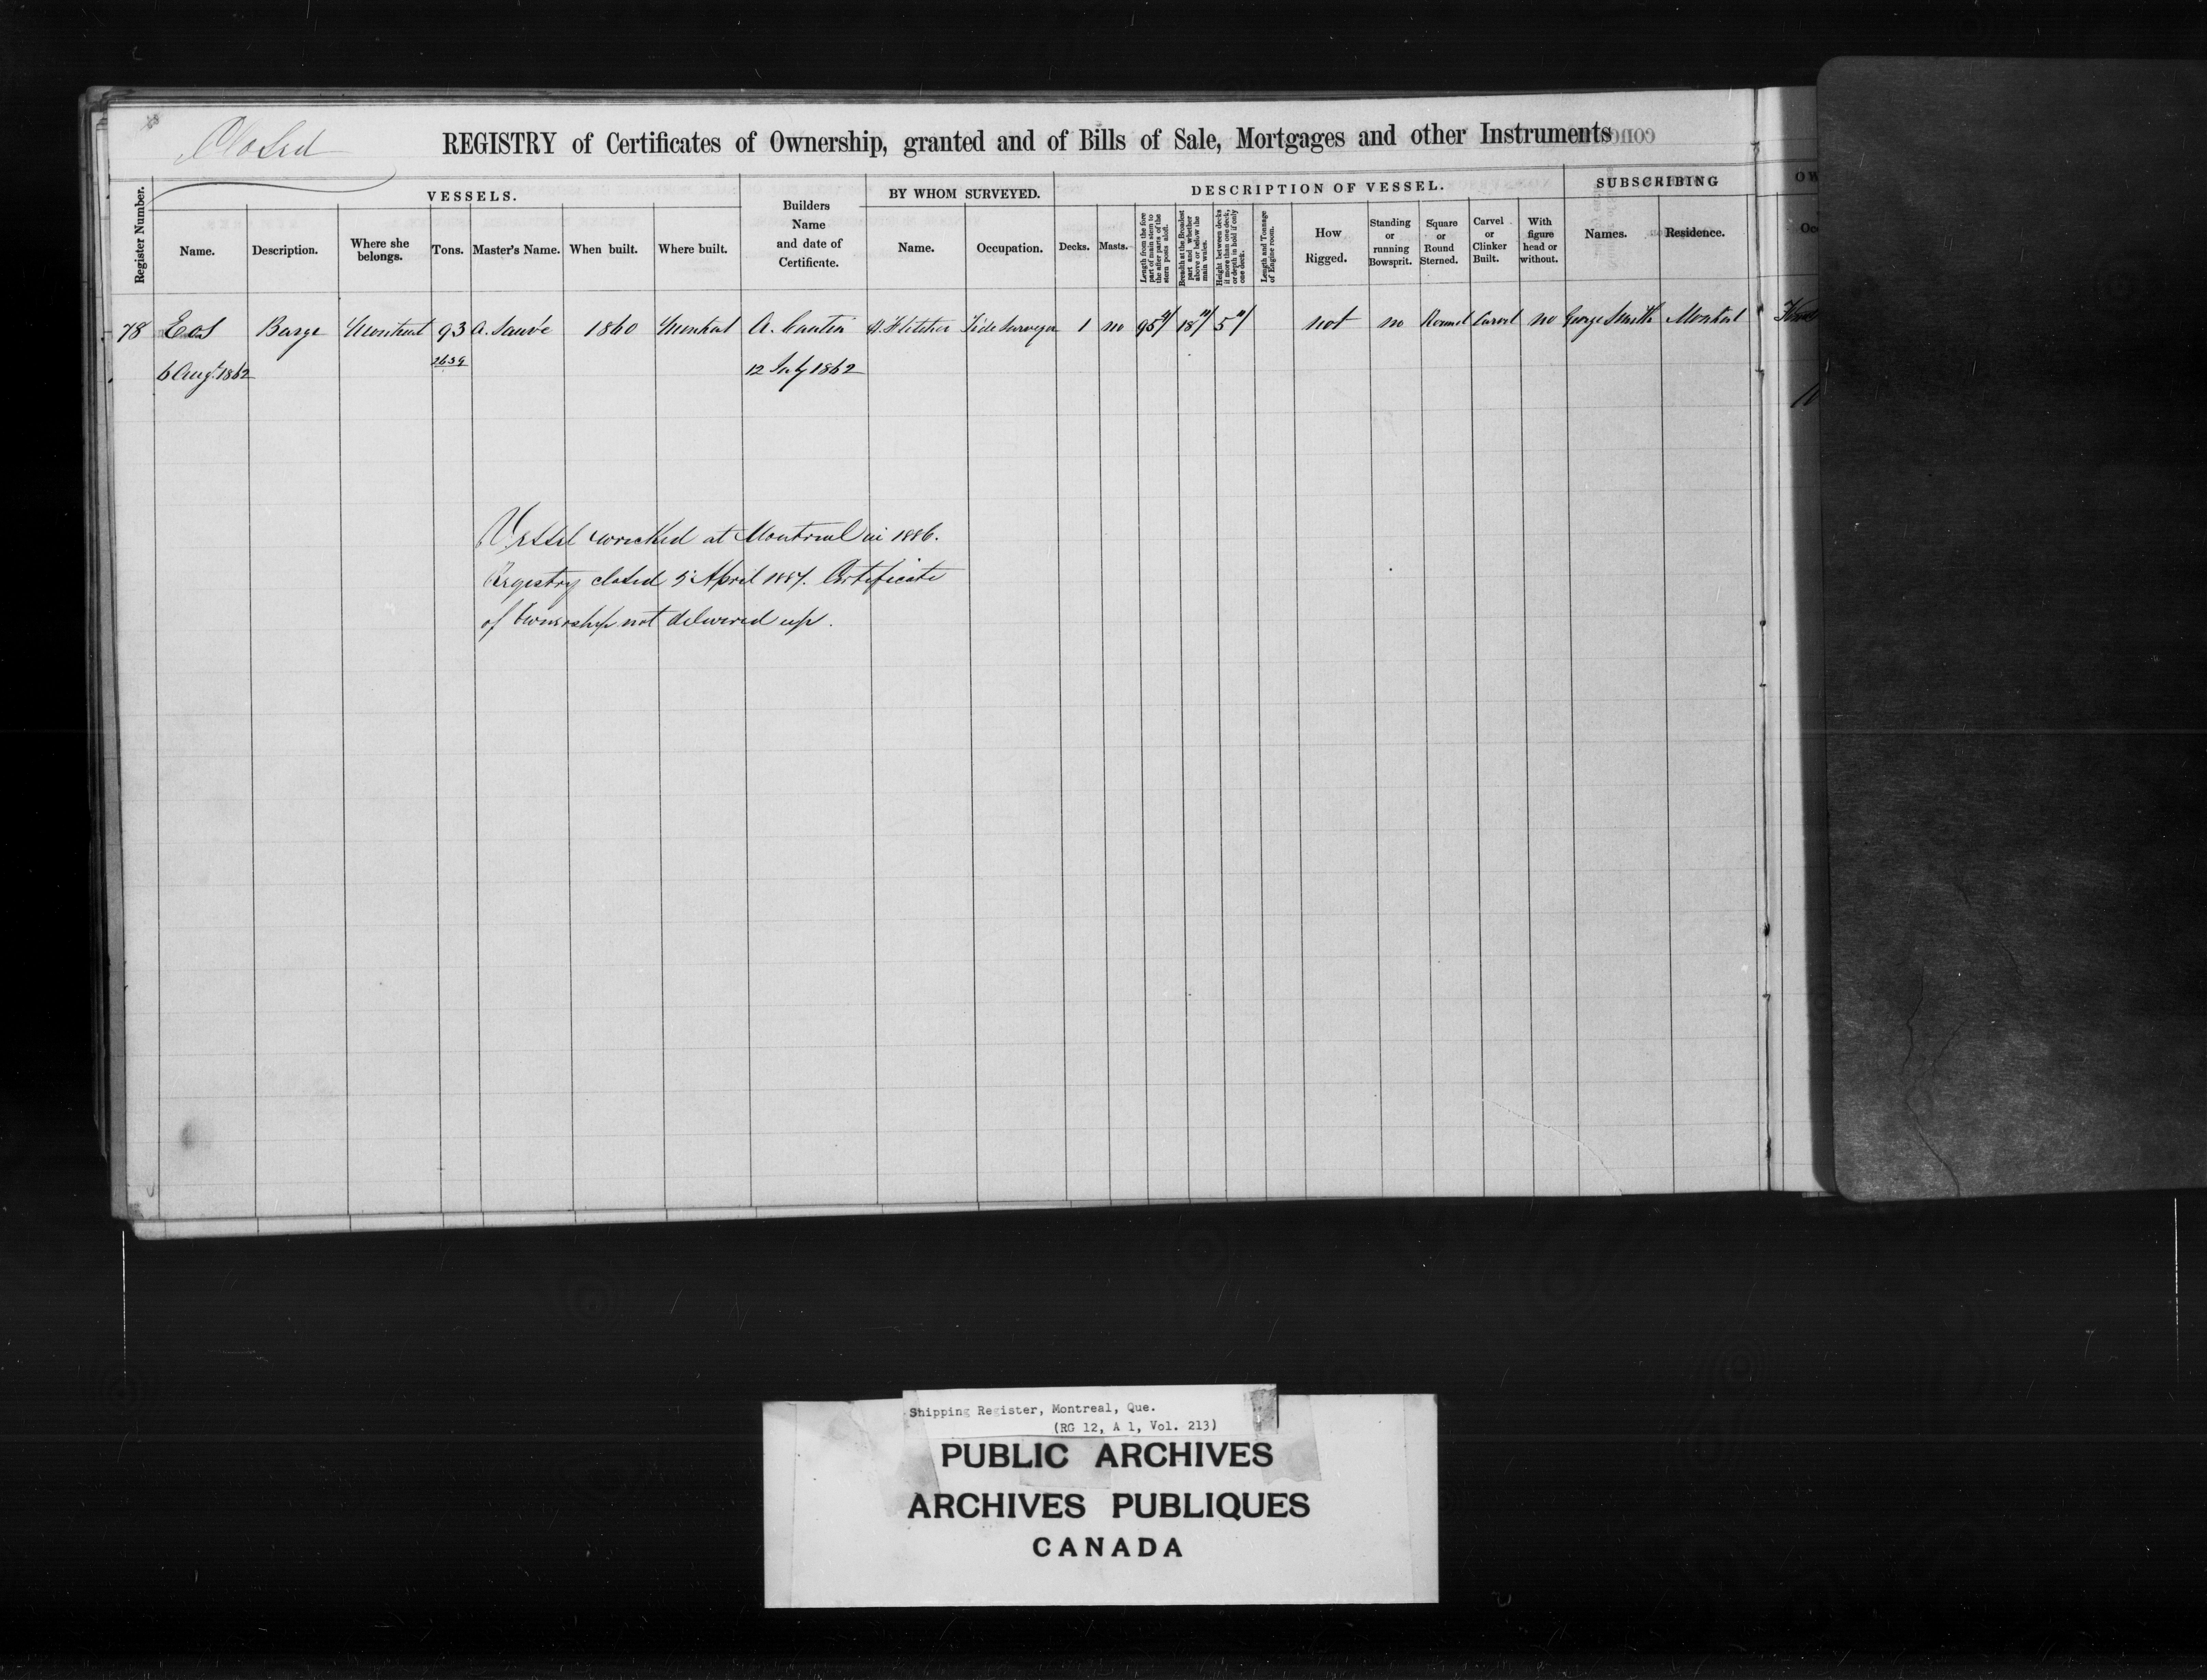 Closed
REGISTRY of Certificates of Ownership, granted and of Bills of Sale, Mortgages and other Instruments
Register Number.
VESSELS.
Name.
Description.
Where she belongs.
Tons.
Master's Name.
When built.
Where built.
Builders Name and date of Certificate.
BY WHOM SURVEYED.
Name.
Occupation.
DESCRIPTION OF VESSEL.
Decks.
Masts.
Length from the fore part of main stem to the after parts of the stern posts aloft.
Breadth at the Broadest part and whether above or below the main wales.
Height between decks if more than one deck, or depth in hold if only one deck.
Length and Tonnage of Engine room.
How Rigged.
Standing or running Bowsprit.
Square or Round Sterned.
Carvel or Clinker Built.
With figure head or without.
SUBSCRIBING
Names.
Residence.
OW
Oc
78 Eos Barge Montreal 93 A. Sauvé 1860 Montreal A. Cantin Fletcher Tide Surveyor 1 no 95 18 5 not no Round Carvel no George Smith Montreal
6 Augt. 1862 2639 12 July 1862
Vessel wrecked at Montreal in 1886.
Registry closed 5 April 1887. Certificate
of Ownership not delivered up.
Shipping Register, Montreal, Que.
(RG 12, A 1, Vol. 213)
PUBLIC ARCHIVES
ARCHIVES PUBLIQUES
CANADA